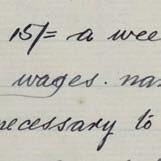 15/= a wee
wages. na
necessary to